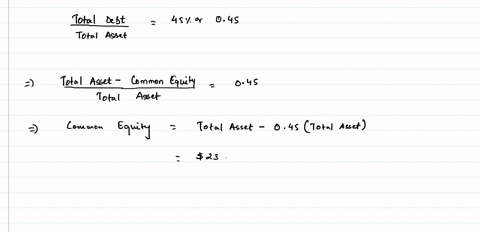 Total Debt / Total Asset = 45% or 0.45
=> Total Asset - Common Equity / Total Asset = 0.45
=> Common Equity = Total Asset - 0.45 (Total Asset)
= $23.